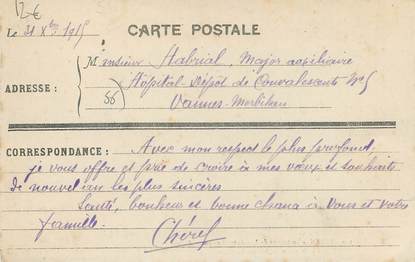 12€
Le 21 Xbre 1915 CARTE POSTALE
Monsieur Habrial, Major auxiliaire
ADRESSE : Hôpital-Dépôt de Convalescents N° 5
(56) Vannes-Morbihan
CORRESPONDANCE : Avec mon respect le plus profond,
je vous offre et prie de croire à mes vœux et souhaits
de nouvel an les plus sincères
Santé, bonheur et bonne chance à Vous et Votre
famille.
Chéref